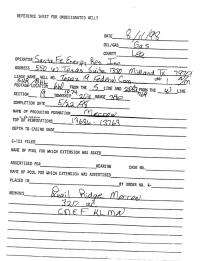 REFERENCE SHEET FOR UNDESIGNATED WELLS
DATE 8/11/98
OIL/GAS Gas
COUNTY Lea
OPERATOR Santa Fe Energy Res. Inc
ADDRESS 550 W. Texas Suite 1330 Midland Tx 79701
LEASE NAME, WELL NO. Topaz 9 Federal Com # 1
FOOTAGE-LOCATION FROM THE S LINE AND FROM THE W LINE
SECTION 9 TOWNSHIP 20S RANGE 34E
COMPLETION DATE 5/22/98
NAME OF PRODUCING FORMATION Morrow
TOP OF PERFORATIONS 13686 - 13763
DEPTH TO CASING SHOE
C-123 FILED
NAME OF POOL FOR WHICH EXTENSION WAS ASKED
ADVERTISED FOR HEARING CASE NO.
NAME OF POOL FOR WHICH EXTENSION WAS ADVERTISED
PLACED IN BY ORDER NO. R-
REMARKS Quail Ridge Morrow
320 ac
CDEF KLMN